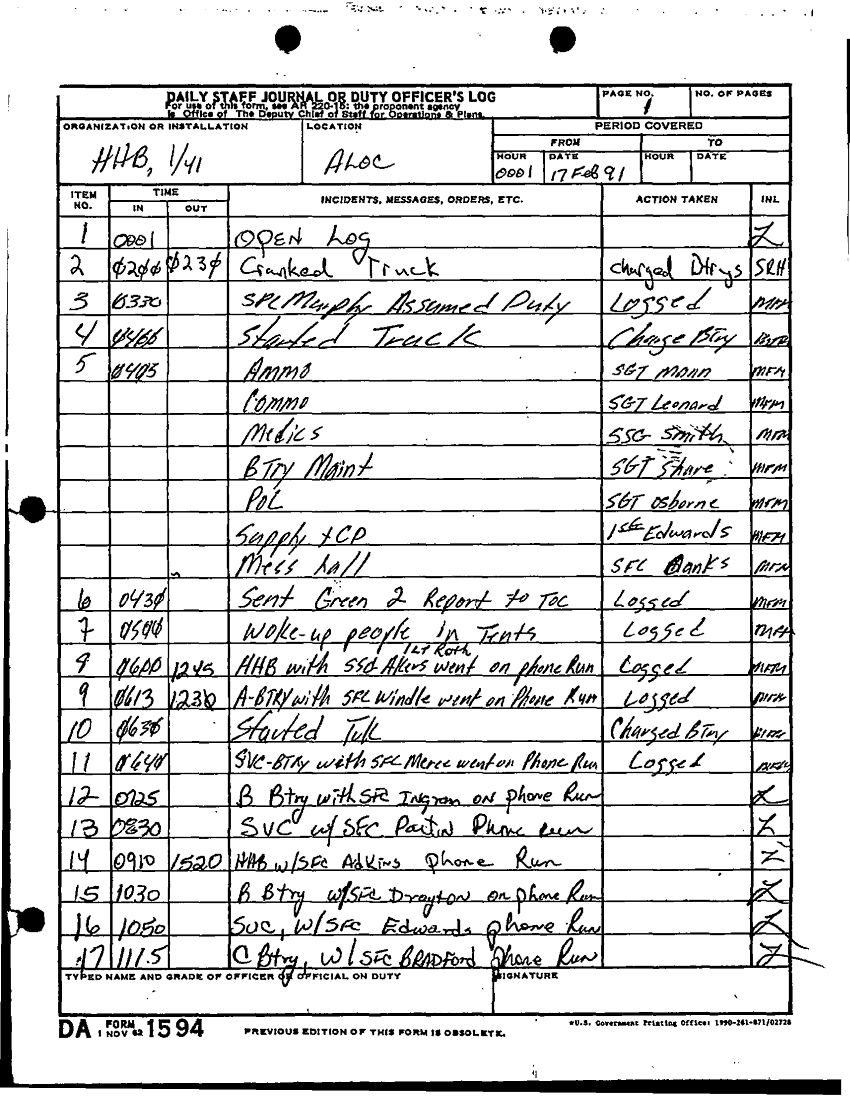 DAILY STAFF JOURNAL OR DUTY OFFICER'S LOG
For use of this form, see AR 220-15; the proponent agency
is Office of The Deputy Chief of Staff for Operations & Plans.
PAGE NO.
1
NO. OF PAGES
ORGANIZATION OR INSTALLATION
HHB, 1/41
LOCATION
ALOC
PERIOD COVERED
FROM TO
HOUR DATE HOUR DATE
0001 17 Feb 91
ITEM NO. TIME IN OUT INCIDENTS, MESSAGES, ORDERS, ETC. ACTION TAKEN INL
1 0001 OPEN Log
2 0200 0230 Cranked Truck charged Dtrys SRH
3 0330 SPC Murphy Assumed Duty Logged MFM
4 0400 Started Truck Charge BTry
5 0403 Ammo SGT Mann MFM
Commo SGT Leonard MFM
Medics SSG Smith MFM
BTry Maint SGT Share MFM
POL SGT Osborne MFM
Supply + CP 1SG Edwards MFM
Mess hall SFC Banks MFM
6 0430 Sent Green 2 Report to TOC Logged MFM
7 0500 Woke-up people in Tents Logged MFM
1LT Roth
8 0600 1245 HHB with SSG Akers went on phone Run Logged MFM
9 0613 1230 A-BTRY with SFC Windle went on Phone Run Logged MFM
10 0630 Started Charged BTry MFM
11 0640 SVC-BTry with SFC Merce went on Phone Run Logged MFM
12 0725 B Btry with SFC Ingram on phone Run
13 0830 SVC w/ SFC Partin Phone Run
14 0910 1520 HHB w/SFC Adkins phone Run
15 1030 B Btry w/SFC Drayton on phone Run
16 1050 SVC, W/SFC Edwards phone Run
17 1115 C Btry, W/SFC BRADFord Phone Run
TYPED NAME AND GRADE OF OFFICER OR OFFICIAL ON DUTY
SIGNATURE
DA FORM 1 NOV 62 1594
PREVIOUS EDITION OF THIS FORM IS OBSOLETE.
*U.S. Government Printing Office: 1990-261-871/02728